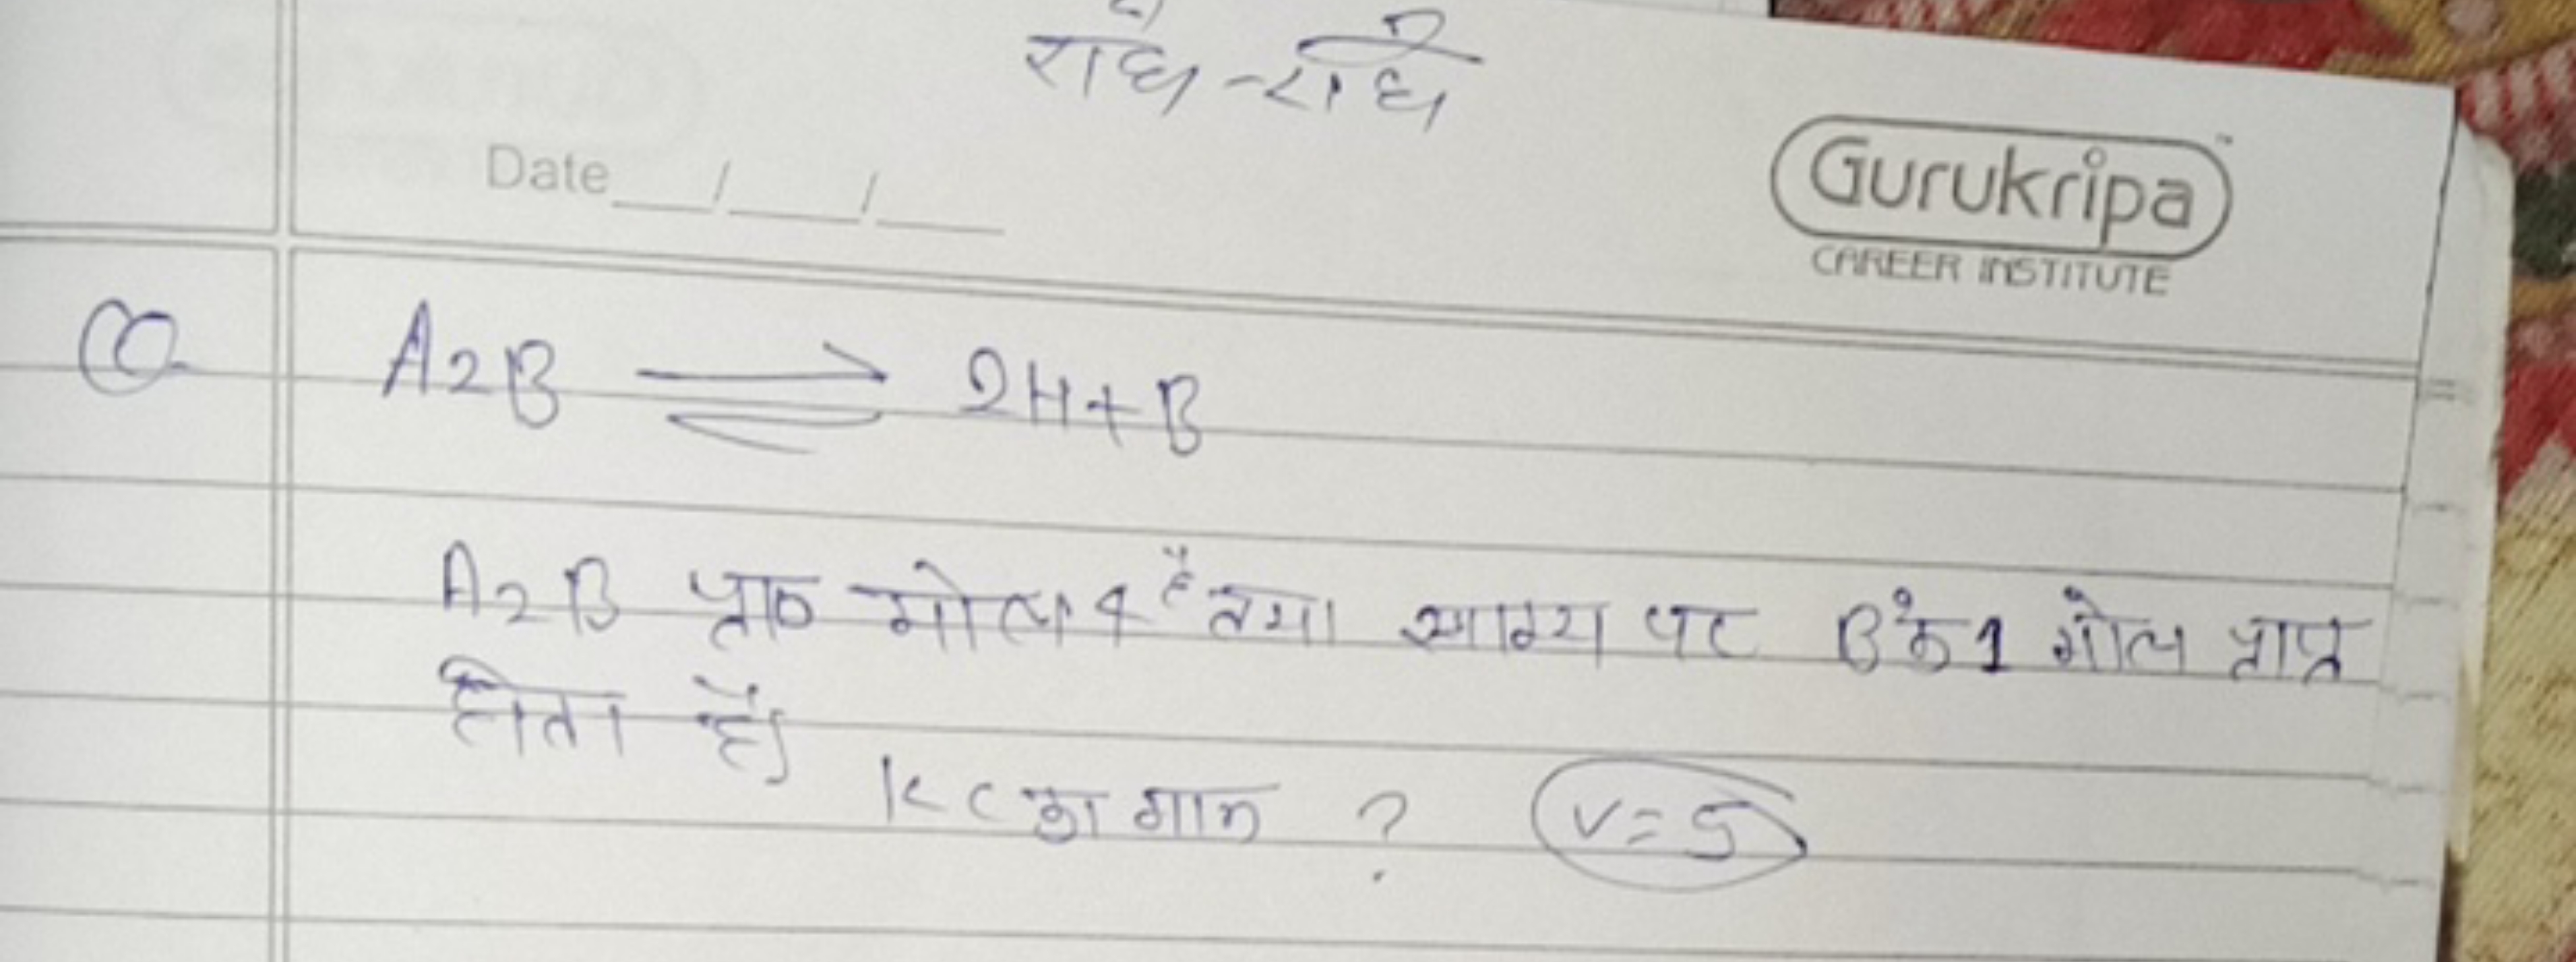 राधे-राधे
Date__/__/__
Gurukripa
CAREER INSTITUTE
Q A2B ⇌ 2A+B
A2B प्रा० मोल 4 है तथा साम्य पर B के 1 मोल प्राप्त
होता है।
Kc का मान ? V=5